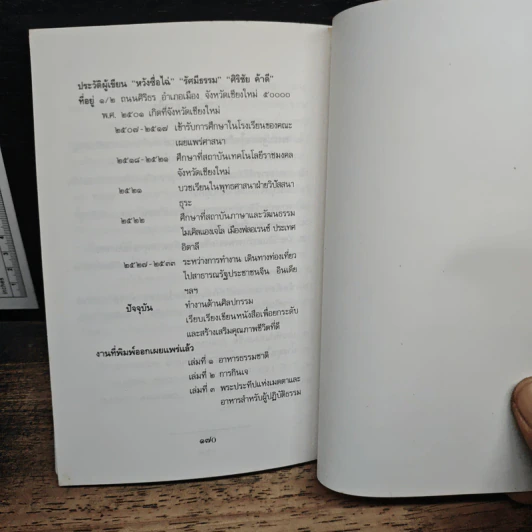 ประวัติผู้เขียน "หวังซื่อไฉ่" "รัศมีธรรม" "ศิริชัย ค้าดี"
ที่อยู่ ๑/๒ ถนนศิริธร อำเภอเมือง จังหวัดเชียงใหม่ ๕๐๐๐๐
พ.ศ. ๒๕๐๑ เกิดที่จังหวัดเชียงใหม่
๒๕๐๗-๒๕๑๗ เข้ารับการศึกษาในโรงเรียนของคณะ
เผยแพร่ศาสนา
๒๕๑๘-๒๕๒๑ ศึกษาที่สถาบันเทคโนโลยีราชมงคล
จังหวัดเชียงใหม่
๒๕๒๑ บวชเรียนในพุทธศาสนาฝ่ายวิปัสสนา
ธุระ
๒๕๒๒ ศึกษาที่สถาบันภาษาและวัฒนธรรม
ไมเคิลแองเจโล เมืองฟลอเรนซ์ ประเทศ
อิตาลี
๒๕๒๗-๒๕๓๓ ระหว่างการทำงาน เดินทางท่องเที่ยว
ไปสาธารณรัฐประชาชนจีน อินเดีย
ฯลฯ
ปัจจุบัน ทำงานด้านศิลปกรรม
เรียบเรียงเขียนหนังสือเพื่อยกระดับ
และสร้างเสริมคุณภาพชีวิตที่ดี
งานที่พิมพ์ออกเผยแพร่แล้ว
เล่มที่ ๑ อาหารธรรมชาติ
เล่มที่ ๒ การกินเจ
เล่มที่ ๓ พระประทีปแห่งเมตตาและ
อาหารสำหรับผู้ปฏิบัติธรรม
๑๗๐